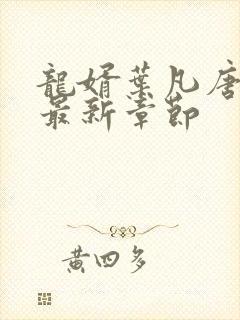 龍婿葉凡唐
最新章節
黃四多